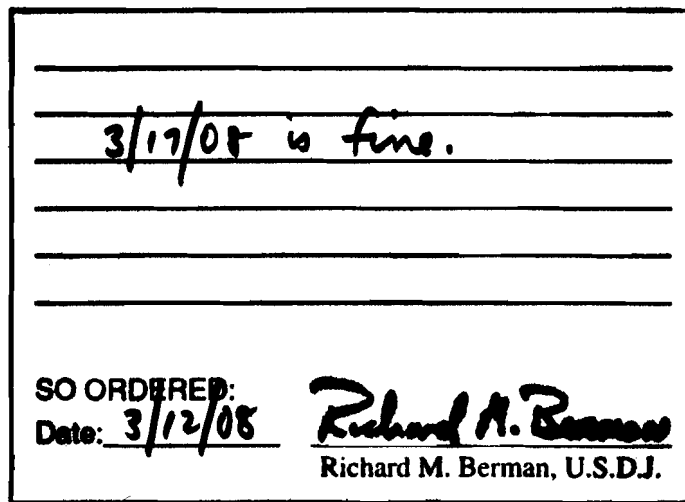 3/17/08 is fine.
SO ORDERED:
Date: 3/12/08 Richard M. Berman
Richard M. Berman, U.S.D.J.